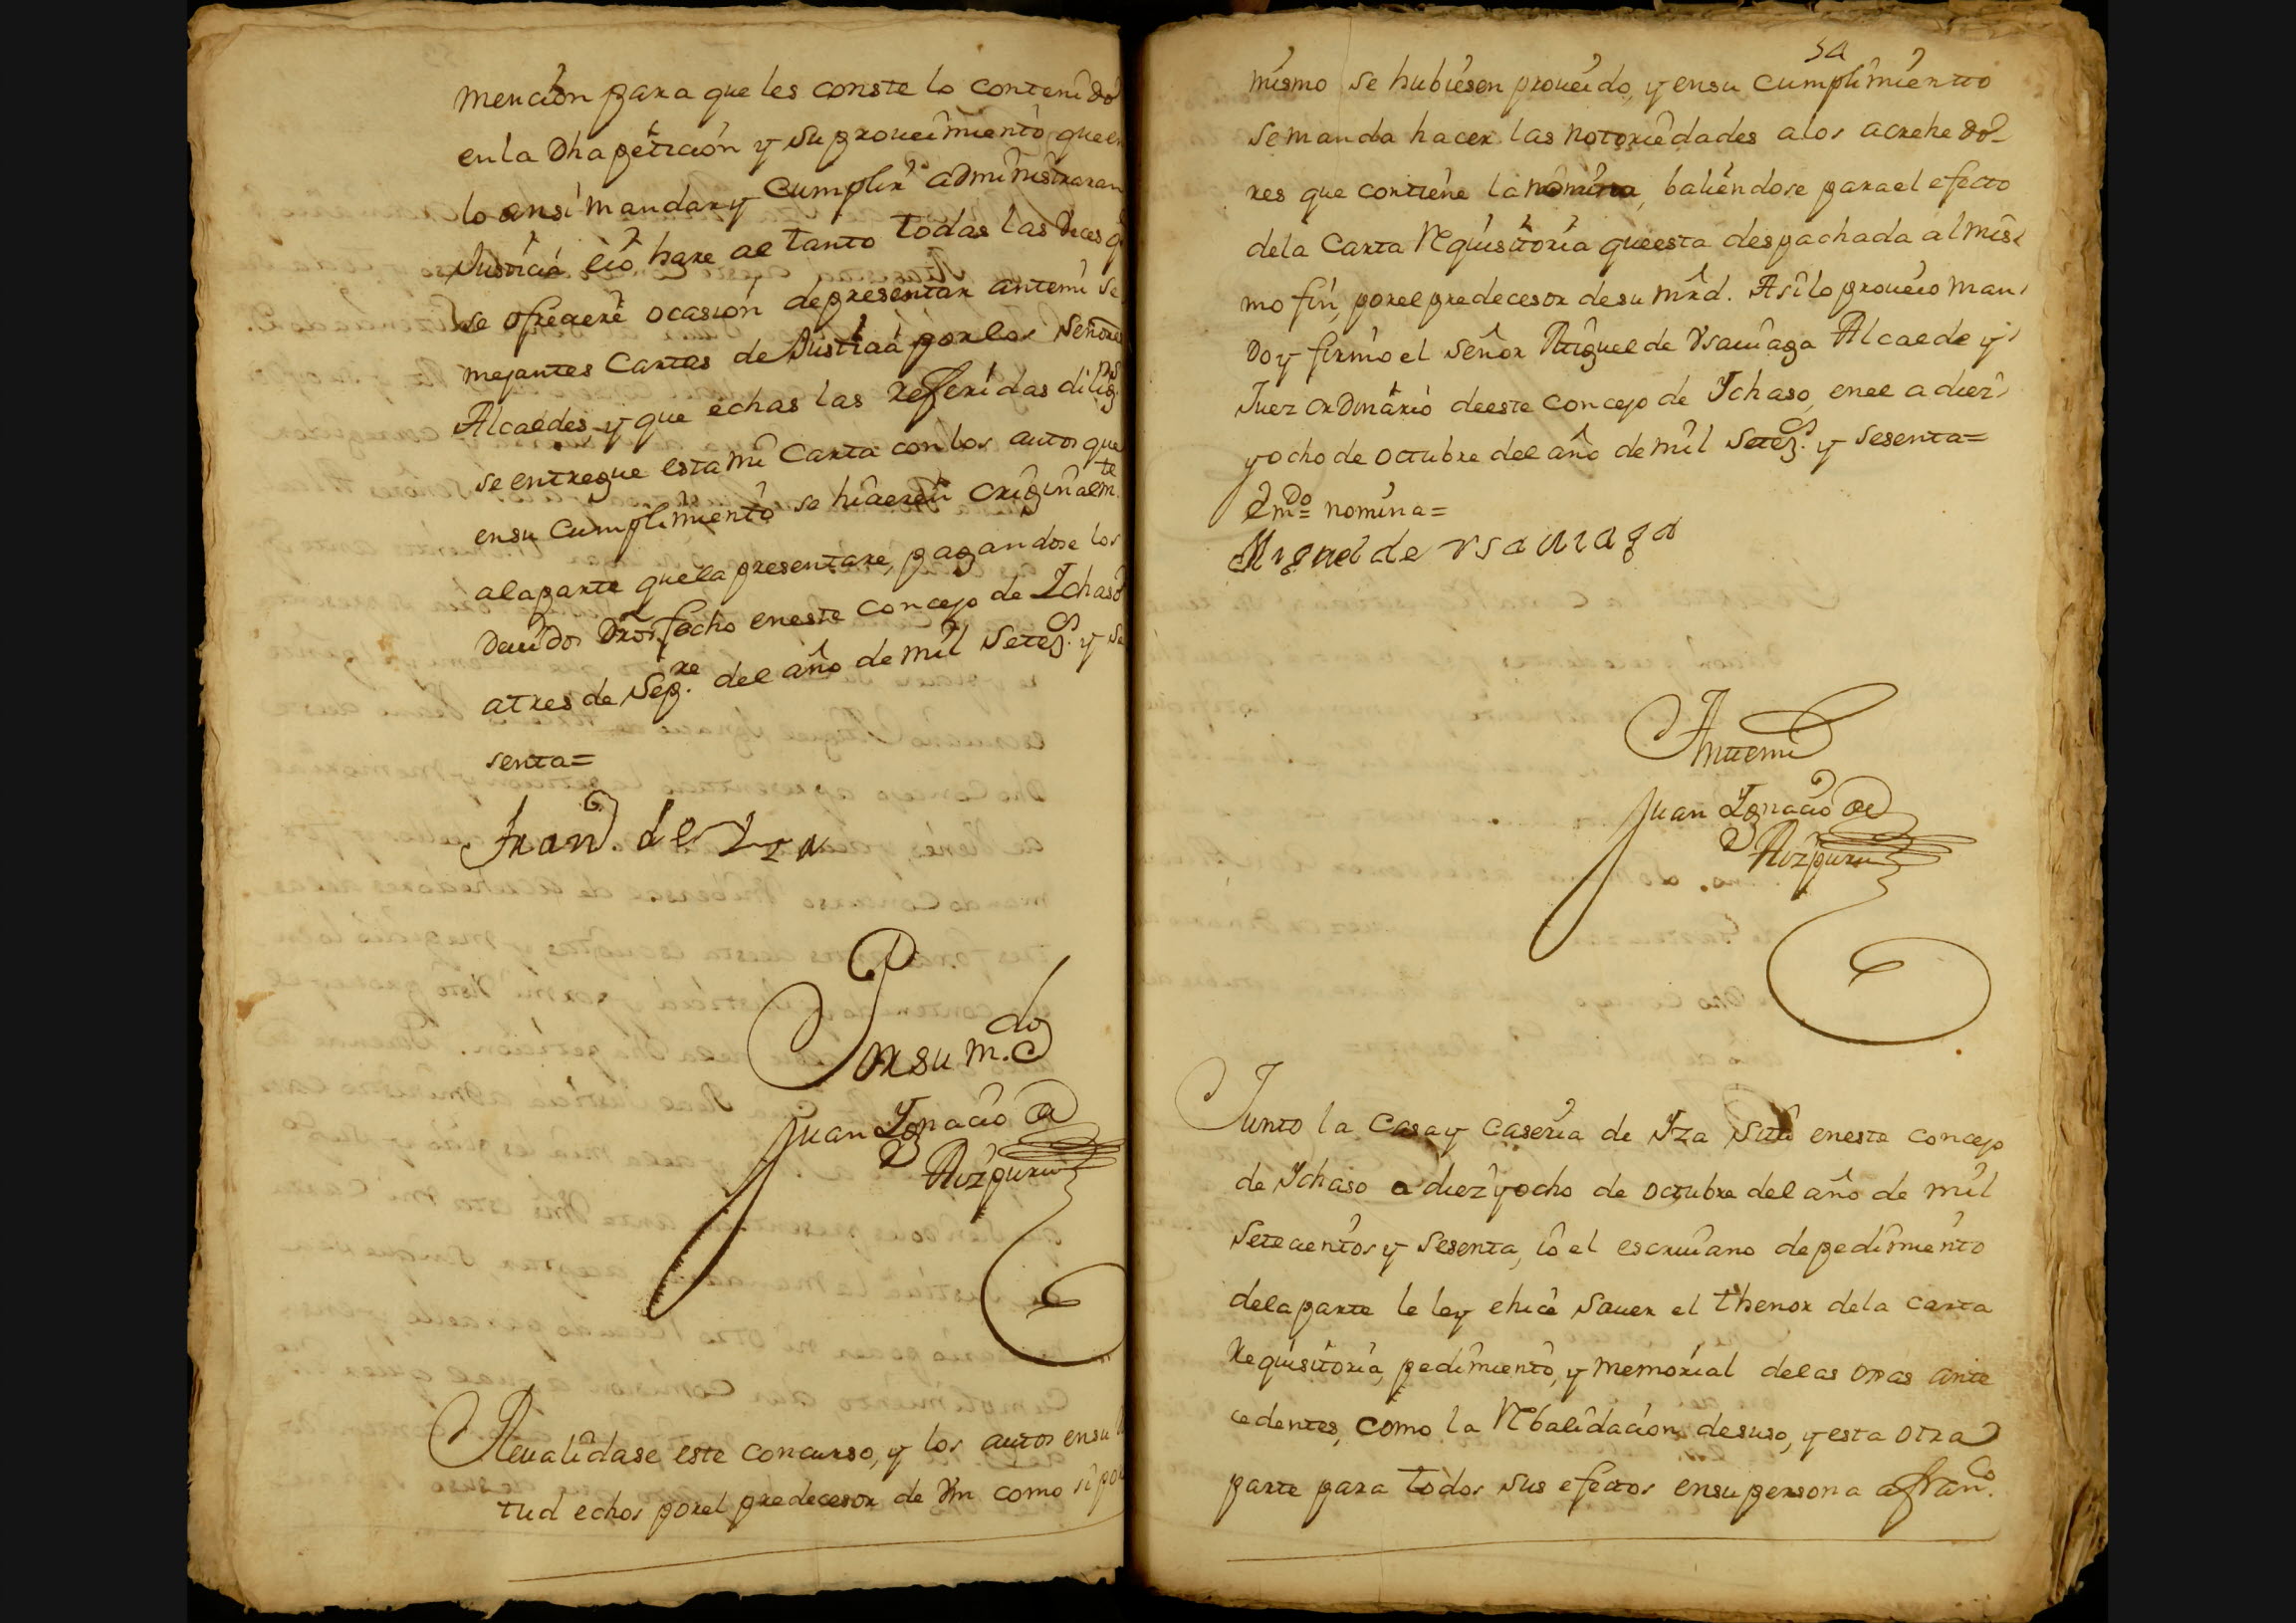 mencion para que les conste lo contenido
en la Dha petizion y su proueimiento que en
lo ansi mandar y cumplir administraran
Justicia e io hare al tanto todas las veces q
se ofreciere ocasion de presentar antemi se
mejantes Cartas de Justicia por los Señores
Alcaldes, y que echas las referidas dilig.as
se entregue esta mi Carta con los autos que
en su cumplimiento se hicieren originalm.te
ala parte que la presentare, pagandose los
deuidos dros. fecho en este concejo de Ichaso
atres de Sep.re del año de mil setez.s y se
senta=
Fran.co de Iza
Por su m.do
Juan Ignacio de
Aizpuru
Reualidase este concurso, y los autos en su
tud echos por el predecesor de Vm como si por
54
mismo se hubiesen proueido, y en su cumplimiento
se manda hacer las notoriedades alos acrehedo-
res que contiene la nomina, baliendose para el efecto
dela Carta Requisitoria que esta despachada al mis-
mo fin, por el predecesor de su mrd. Asi lo proueio man-
do y firmo el señor Miguel de Vsauiaga Alcalde y
Juez ordinario de este concejo de Ichaso, en el a diez
y ocho de octubre del año de mil setez.s y sesenta=
Em.do= nomina=
Miguel de vsauiaga
Antemi
Juan Ignacio de
Aizpuru
Junto la Casa y Caseria de Iza sitta en este concejo
de Ichaso a diez y ocho de octubre del año de mil
setecientos y sesenta, io el escriuano de pedimiento
dela parte le ley e hice sauer el thenor dela carta
Requisitoria, pedimiento, y memorial delas ojas ante
cedentes, como la Rebalidacion desuso, y esta otra
parte para todos sus efectos en su persona a fran.co